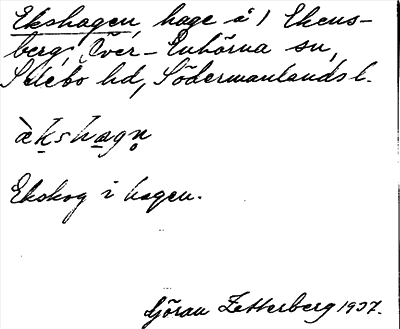 Ekshagen, hage å 1 Ekens-
berg, Över-Enhörna sn,
Selebo hd, Södermanlands l.
àkshagn̥
Ekskog i hagen.
Göran Zetterberg 1937.